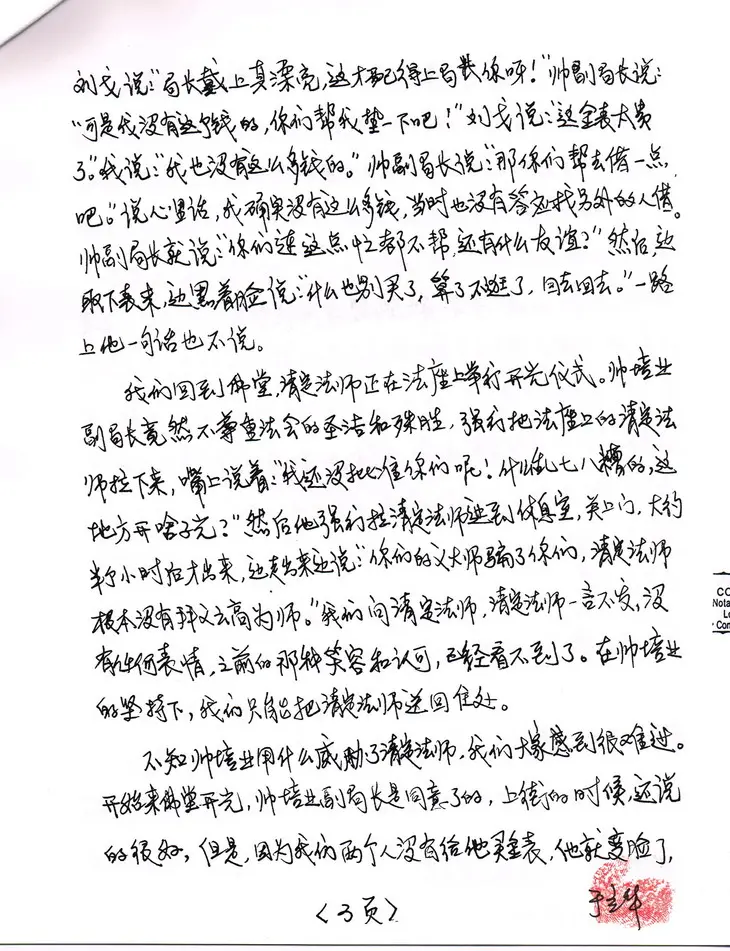 刘戈说:“局长戴上真漂亮,这才配得上局长你呀!”帅副局长说:
“可是我没有这个钱的,你们帮我垫一下吧!”刘戈说:“这金表太贵
了。”我说:“我也没有这么多钱的。”帅副局长说:“那你们帮去借一点
吧。”说心里话,我确实没有这么多钱,当时也没有答应找另外的人借。
帅副局长就说:“你们连这点忙都不帮,还有什么友谊?”然后,边
取下表来,边黑着脸说:“什么也别买了,算了不逛了,回去回去。”一路
上他一句话也不说。
我们回到佛堂,清定法师正在法座上举行开光仪式。帅培业
副局长竟然不尊重法会的圣洁和殊胜,强行把法座上的清定法
师拉下来,嘴上说着:“我还没批准你们呢!什么乱七八糟的,这
地方开啥子光?”然后他强行拉清定法师进到休息室,关上门,大约
半个小时后才出来,边走出来边说:“你们的义大师骗了你们,清定法师
根本没有拜义云高为师。”我们问清定法师,清定法师一言不发,没
有任何表情,之前的那种笑容和认可,已经看不到了。在帅培业
的坚持下,我们只能把清定法师送回住处。
不知帅培业用什么威胁了清定法师,我们大家感到很难过。
开始来佛堂开光,帅培业副局长是同意了的,上街的时候,还说
的很好,但是,因为我们两个人没有给他买金表,他就变脸了,
<3页>
CO
Nota
Lo
Com